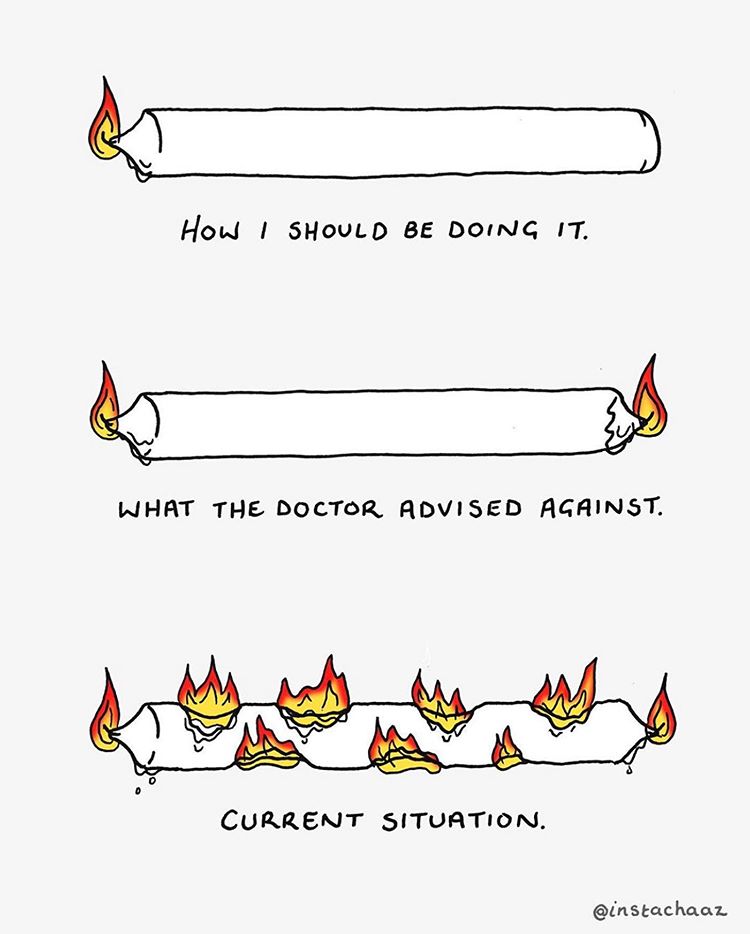 HOW I SHOULD BE DOING IT.
WHAT THE DOCTOR ADVISED AGAINST.
CURRENT SITUATION.
@instachaaz